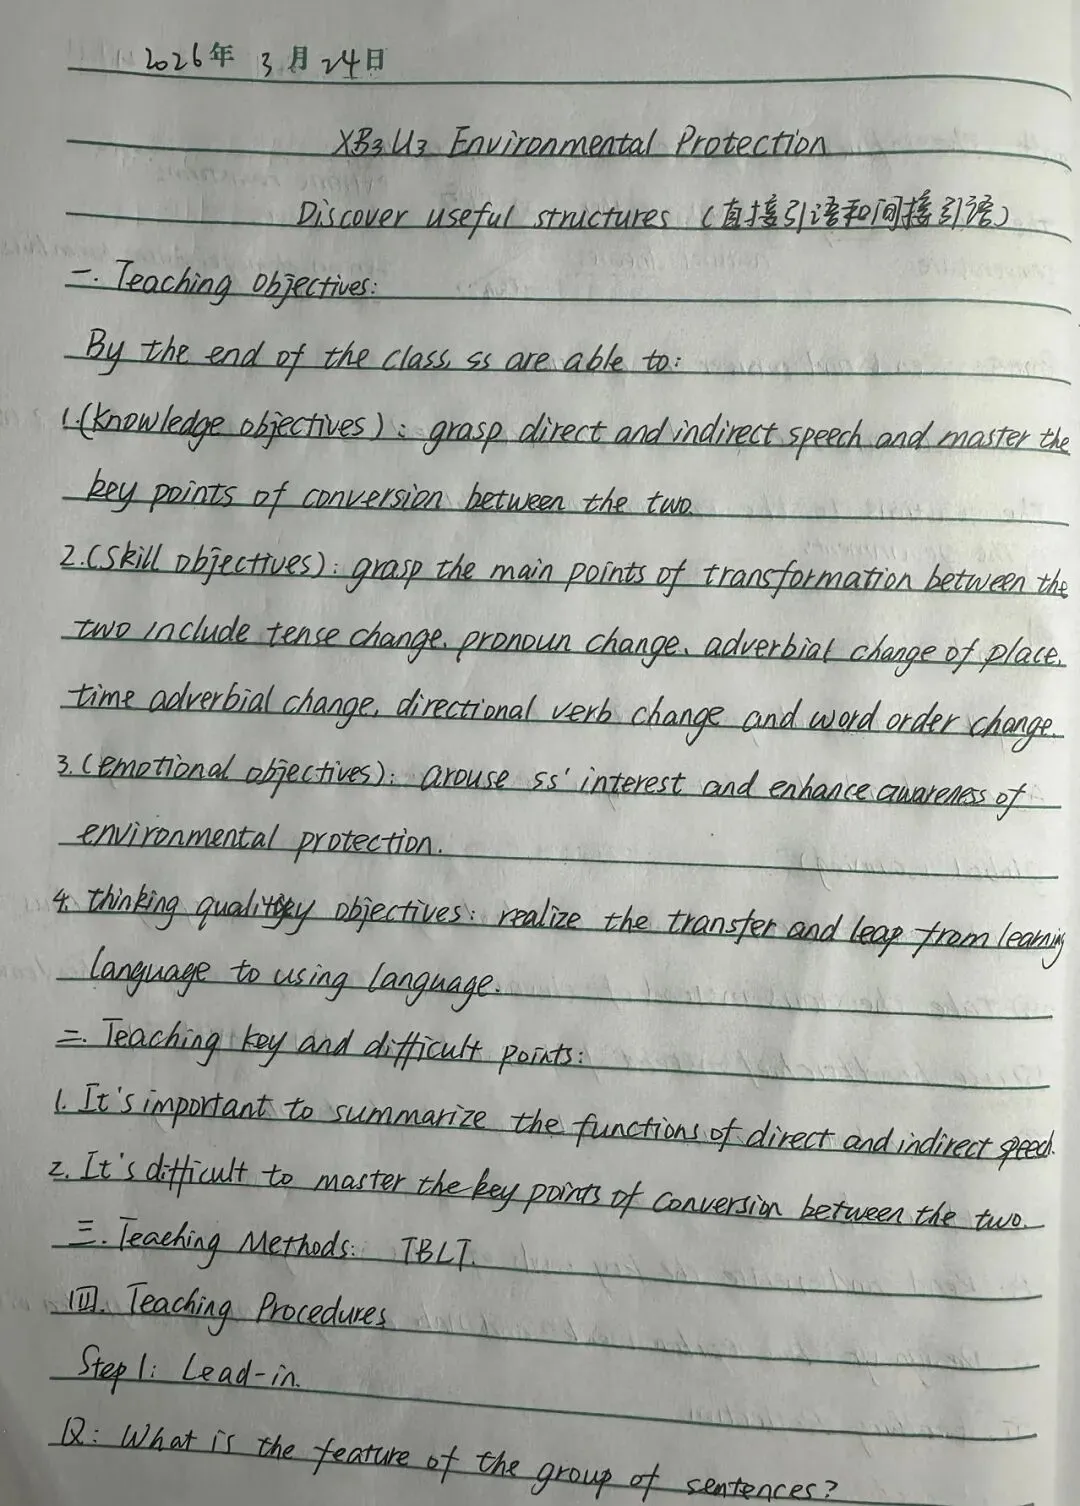 2026年 3月24日
XB3U3 Environmental Protection
Discover useful structures (直接引语和间接引语)
一. Teaching Objectives:
By the end of the class, ss are able to:
1.(knowledge objectives): grasp direct and indirect speech and master the
key points of conversion between the two.
2.(Skill objectives): grasp the main points of transformation between the
two include tense change、pronoun change、adverbial change of place、
time adverbial change、directional verb change and word order change.
3.(emotional objectives): arouse ss' interest and enhance awareness of
environmental protection.
4. thinking quality objectives: realize the transfer and leap from learning
language to using language.
二. Teaching key and difficult points:
1. It's important to summarize the functions of direct and indirect speech.
2. It's difficult to master the key points of conversion between the two.
三. Teaching Methods: TBLT.
四. Teaching Procedures
Step 1: Lead-in.
Q: What is the feature of the group of sentences?